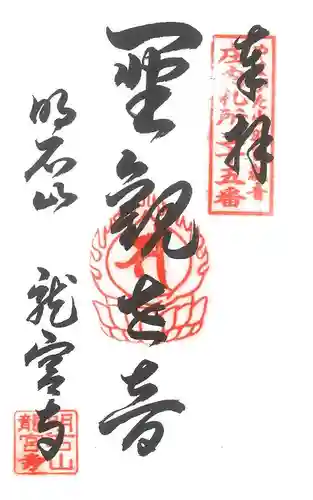 奉拝
庄内札所二十五番
聖観世音
明石山
龍宮寺
明石山
龍宮寺